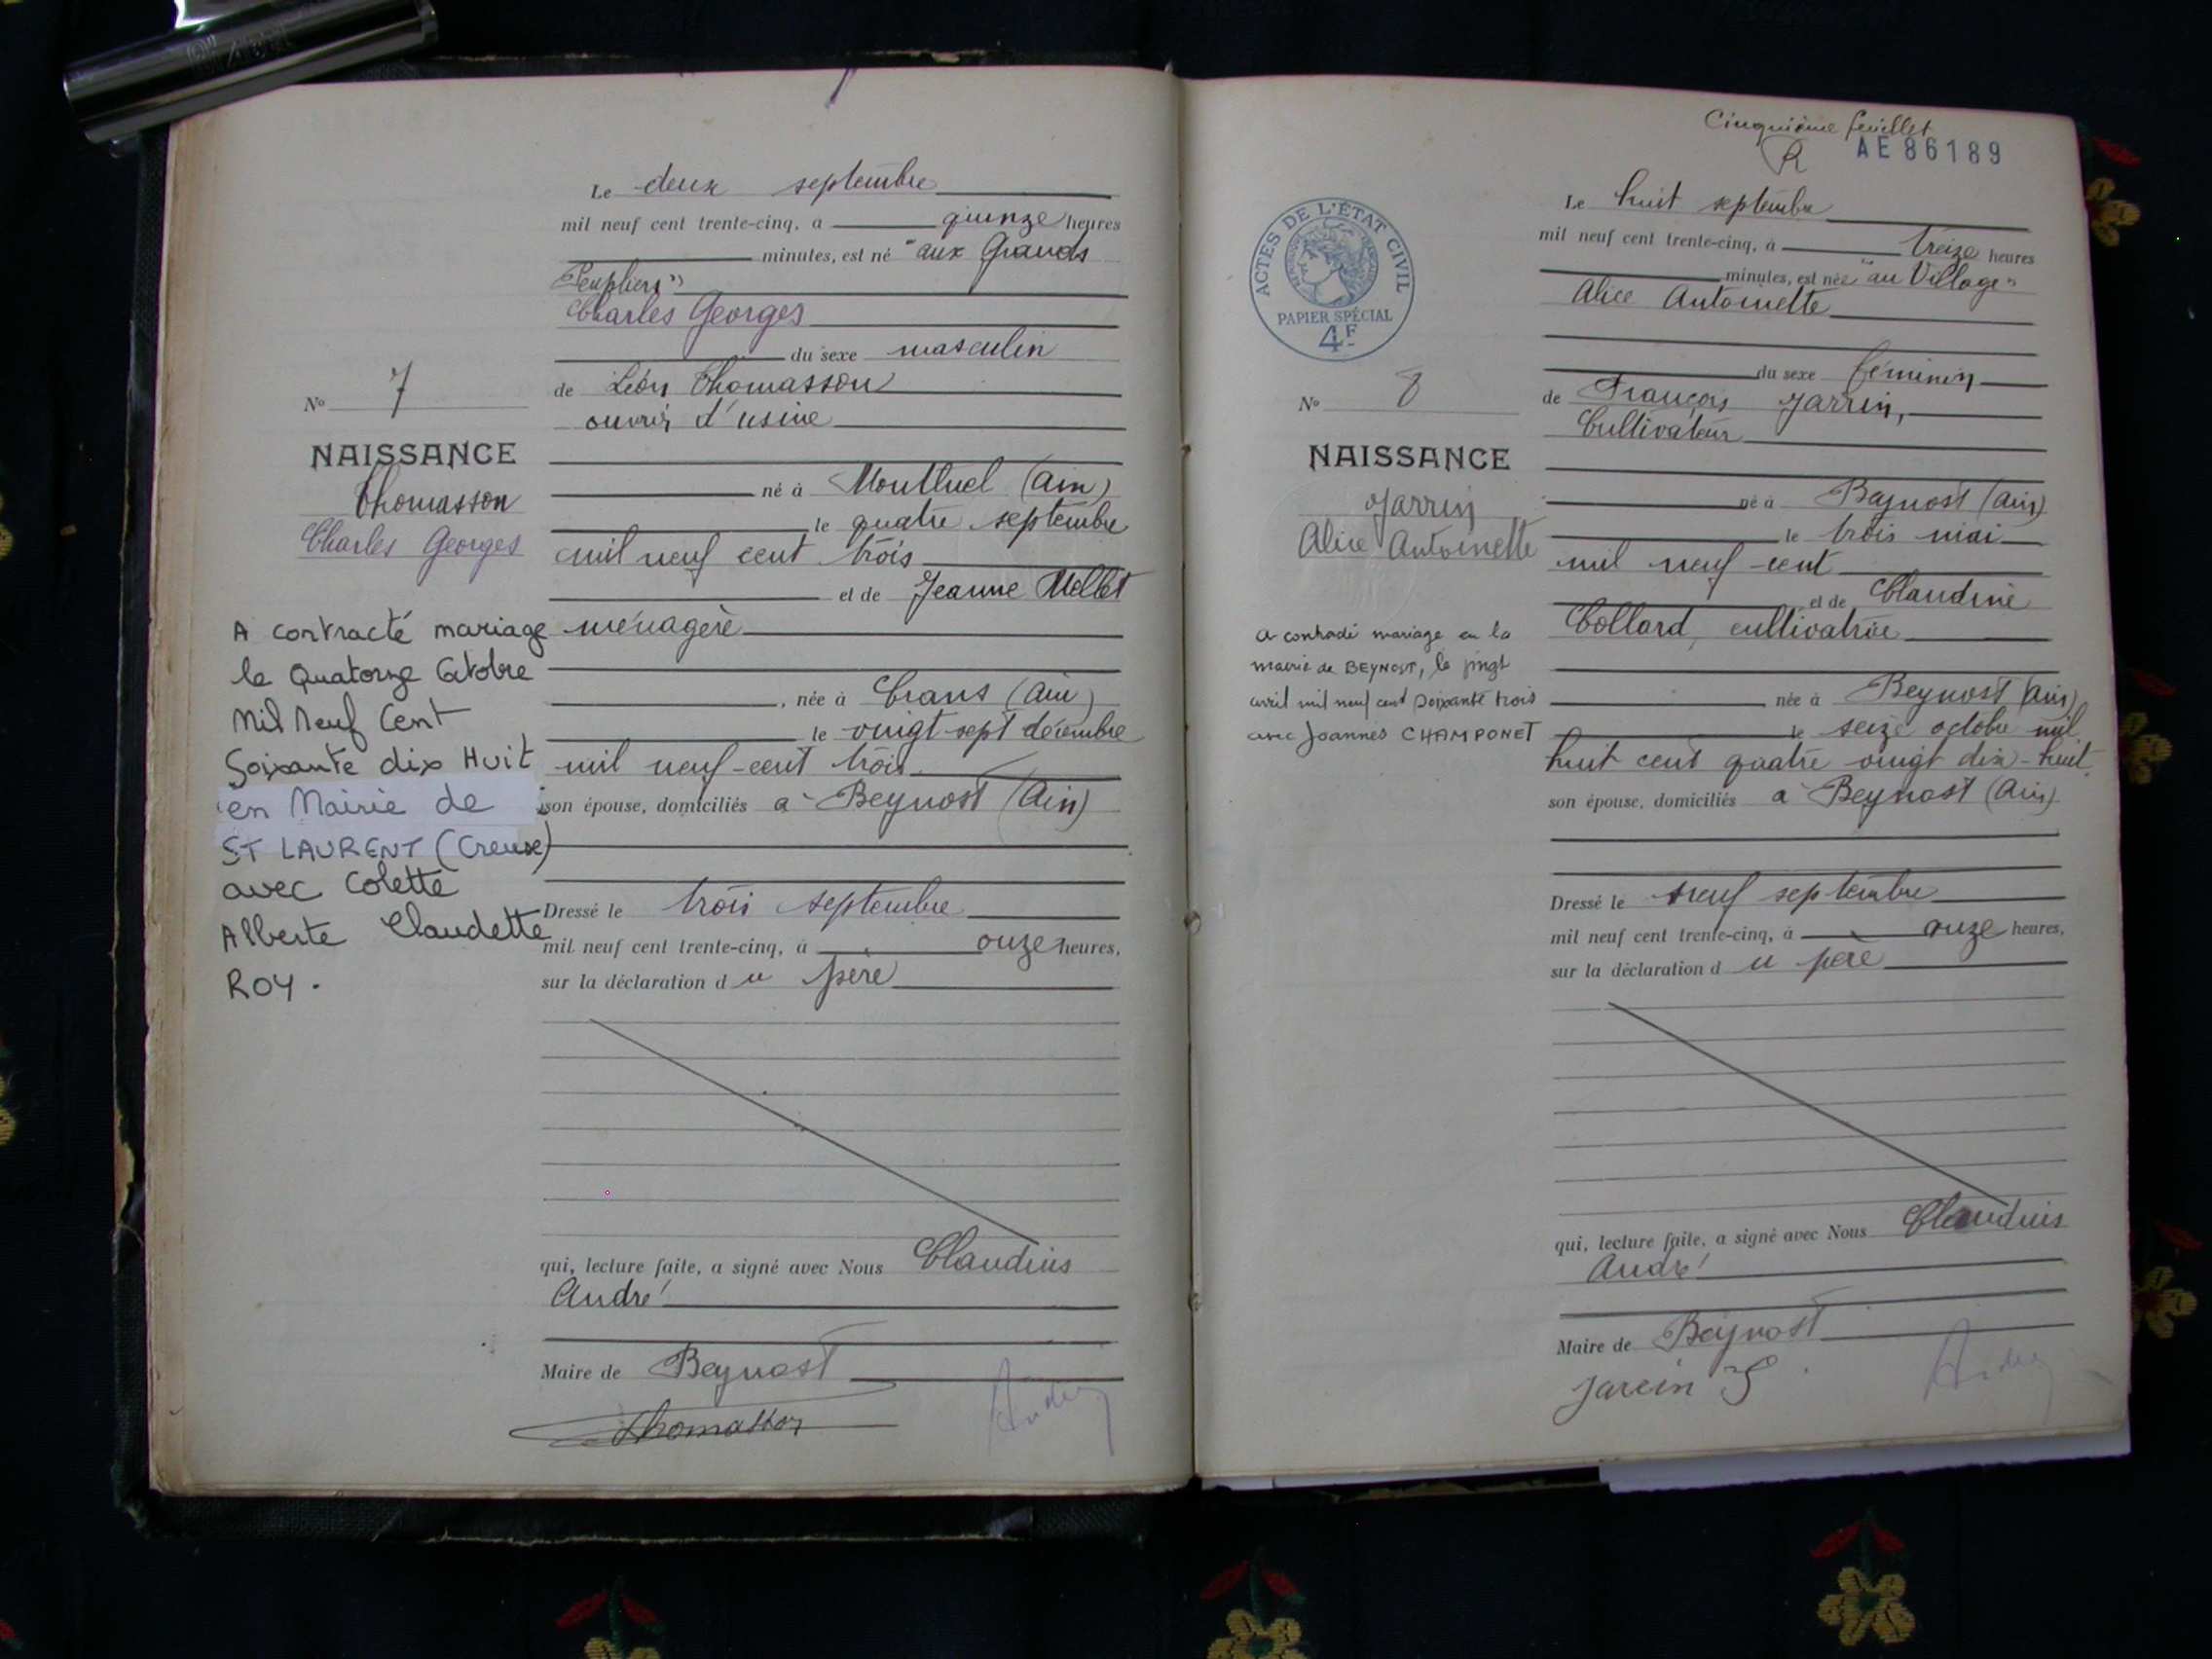 Le deux septembre
mil neuf cent trente-cinq, à quinze heures
minutes, est né "aux Grands
Peupliers"
Charles Georges
du sexe masculin
de Léon Thomasson
ouvrier d'usine
né à Montluel (Ain)
le quatre septembre
mil neuf cent trois
et de Jeanne Mellet
ménagère
, née à Crans (Ain)
le vingt sept décembre
mil neuf-cent trois
son épouse, domiciliés à Beynost (Ain)
Dressé le trois septembre
mil neuf cent trente-cinq, à onze heures,
sur la déclaration du père
qui, lecture faite, a signé avec Nous Claudius
André
Maire de Beynost
Thomasson
N° 7
NAISSANCE
Thomasson
Charles Georges
A contracté mariage
le Quatorze Octobre
Mil Neuf Cent
Soixante dix Huit
en Mairie de
ST LAURENT (Creuse)
avec Colette
Alberte Claudette
ROY.
Cinquième feuillet
AE86189
ACTES DE L'ÉTAT CIVIL
PAPIER SPÉCIAL
4F
Le huit septembre
mil neuf cent trente-cinq, à treize heures
minutes, est née "au Village"
Alice Antoinette
du sexe féminin
de François Jarrin,
Cultivateur
né à Beynost (Ain)
le trois mai
mil neuf cent
et de Claudine
Collard, cultivatrice
née à Beynost (Ain)
le seize octobre mil
huit cent quatre vingt dix-huit
son épouse, domiciliés à Beynost (Ain)
Dressé le neuf septembre
mil neuf cent trente-cinq, à onze heures,
sur la déclaration du père
qui, lecture faite, a signé avec Nous Claudius
André
Maire de Beynost
Jarrin
N° 8
NAISSANCE
Jarrin
Alice Antoinette
a contracté mariage en la
mairie de BEYNOST, le vingt
avril mil neuf cent soixante trois
avec Joannès CHAMPONET